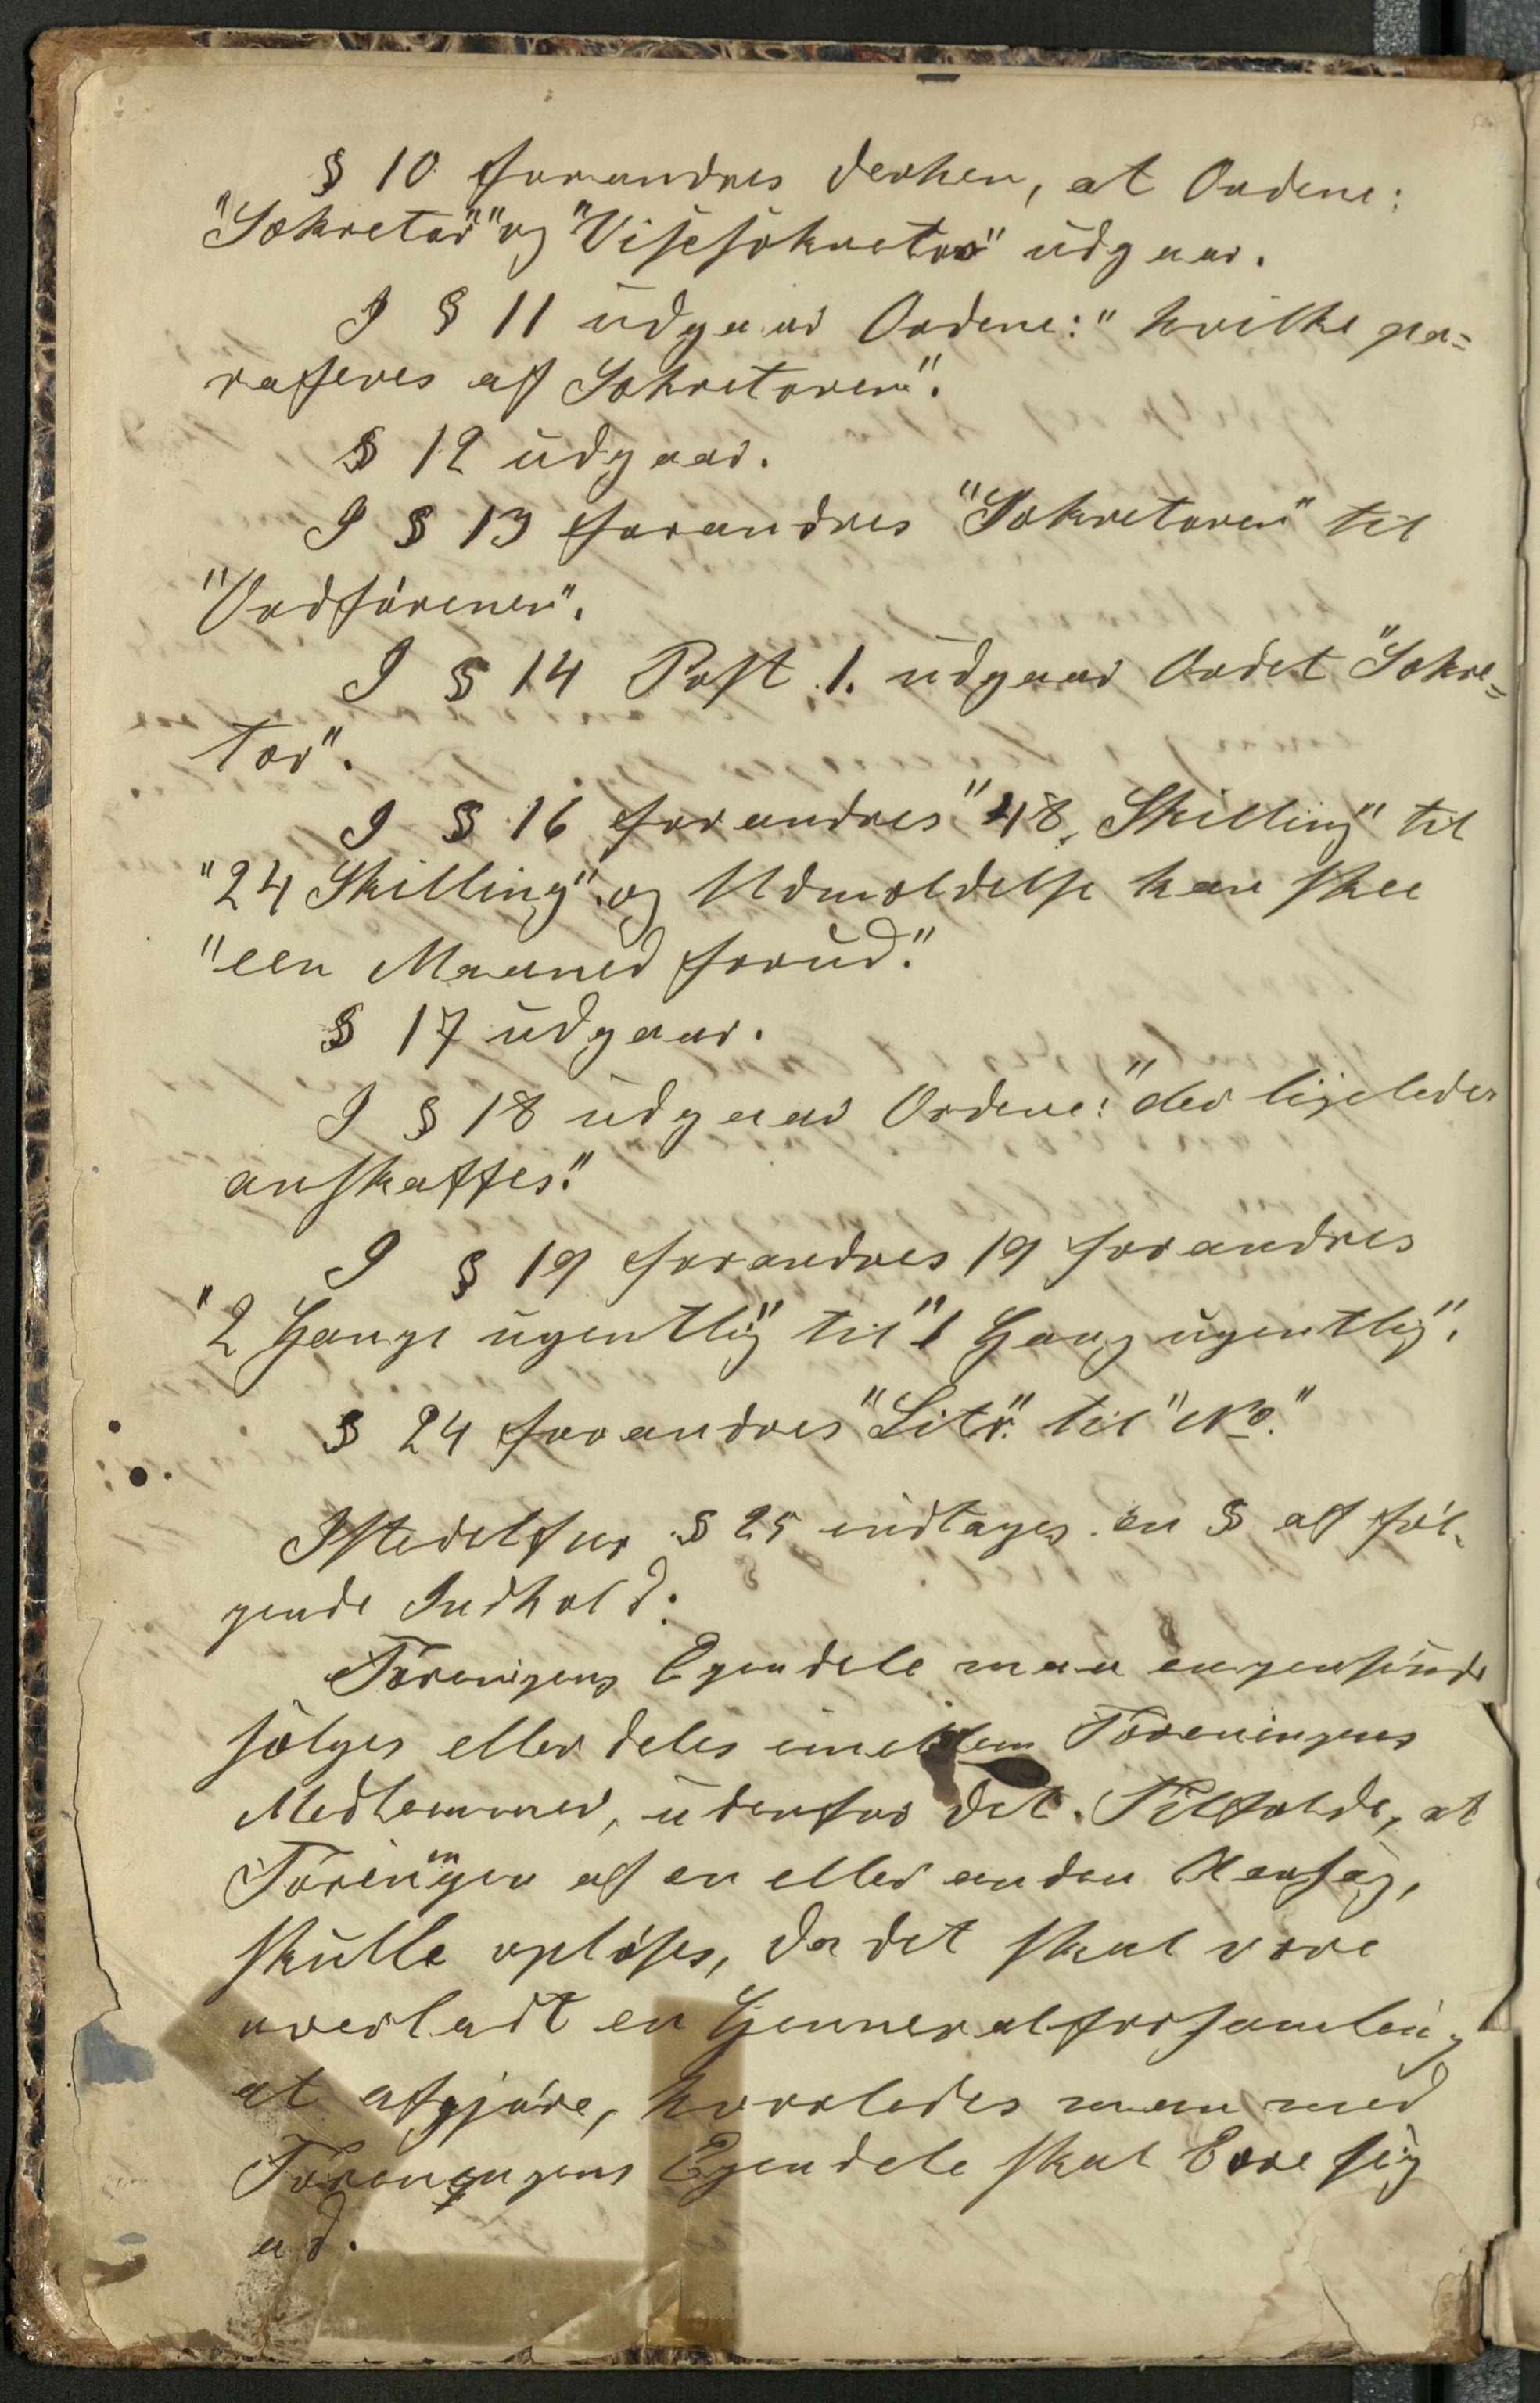 § 10 forandres derhen, at Ordene:
"Sekretær" og "Visesekretær" udgaar.
I § 11 udgaar Ordene: "hvilke pa=
raferes af Sekretæren".
§ 12 udgaar.
I § 13 forandres "Sekretæren" til
"Ordføreren".
I § 14 Post 1. udgaar Ordet "Sekre=
tær".
I § 16 forandres "48 Skilling" til
"24 Skilling" og Udmeldelse kan skee
"een Maaned forud."
§ 17 udgaar.
I § 18 udgaar Ordene: "der ligeledes
anskaffes."
I § 19 forandres 19 forandres
"2 Gange ugentlig" til "1 Gang ugentlig".
§ 24 forandres "Litr." til "No."
Istedetfor § 25 indtages en § af føl-
gende Indhold:
Foreningens Egendele maa ingensinde
sælges eller deles imellem Foreningens
Medlemmer, udenfor det Tilfælde, at
Foreningen af en eller anden Aarsag,
skulle opløses, da det skal være
overladt en Genneralforsamling
at afgjøre, hvorledes man med
Foreningens Egendele skal bære sig
ad.